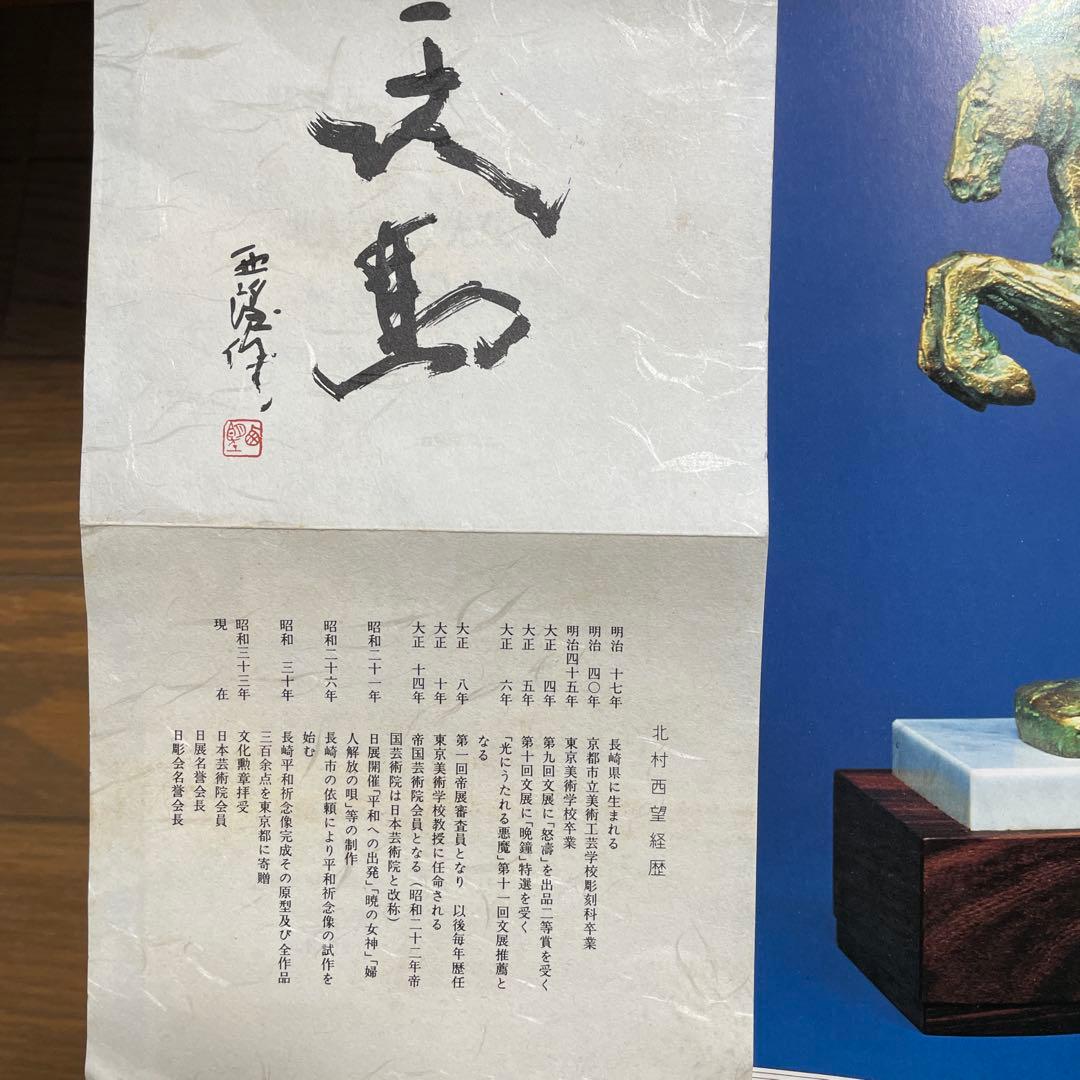 天馬
西望作
西望
北村西望経歴
明治 十七年 長崎県に生まれる
明治 四〇年 京都市立美術工芸学校彫刻科卒業
明治四十五年 東京美術学校卒業
大正 四年 第九回文展に「怒濤」を出品二等賞を受く
大正 五年 第十回文展に「晩鐘」特選を受く
大正 六年 「光にうたれる悪魔」第十一回文展推薦と
なる
大正 八年 第一回帝展審査員となり 以後毎年歴任
大正 十年 東京美術学校教授に任命される
大正 十四年 帝国芸術院会員となる(昭和二十二年帝
国芸術院は日本芸術院と改称)
昭和二十一年 日展開催「平和への出発」「暁の女神」「婦
人解放の唄」等の制作
昭和二十六年 長崎市の依頼により平和祈念像の試作を
始む
昭和 三十年 長崎平和祈念像完成その原型及び全作品
三百余点を東京都に寄贈
昭和三十三年 文化勲章拝受
現 在 日本芸術院会員
日展名誉会長
日彫会名誉会長